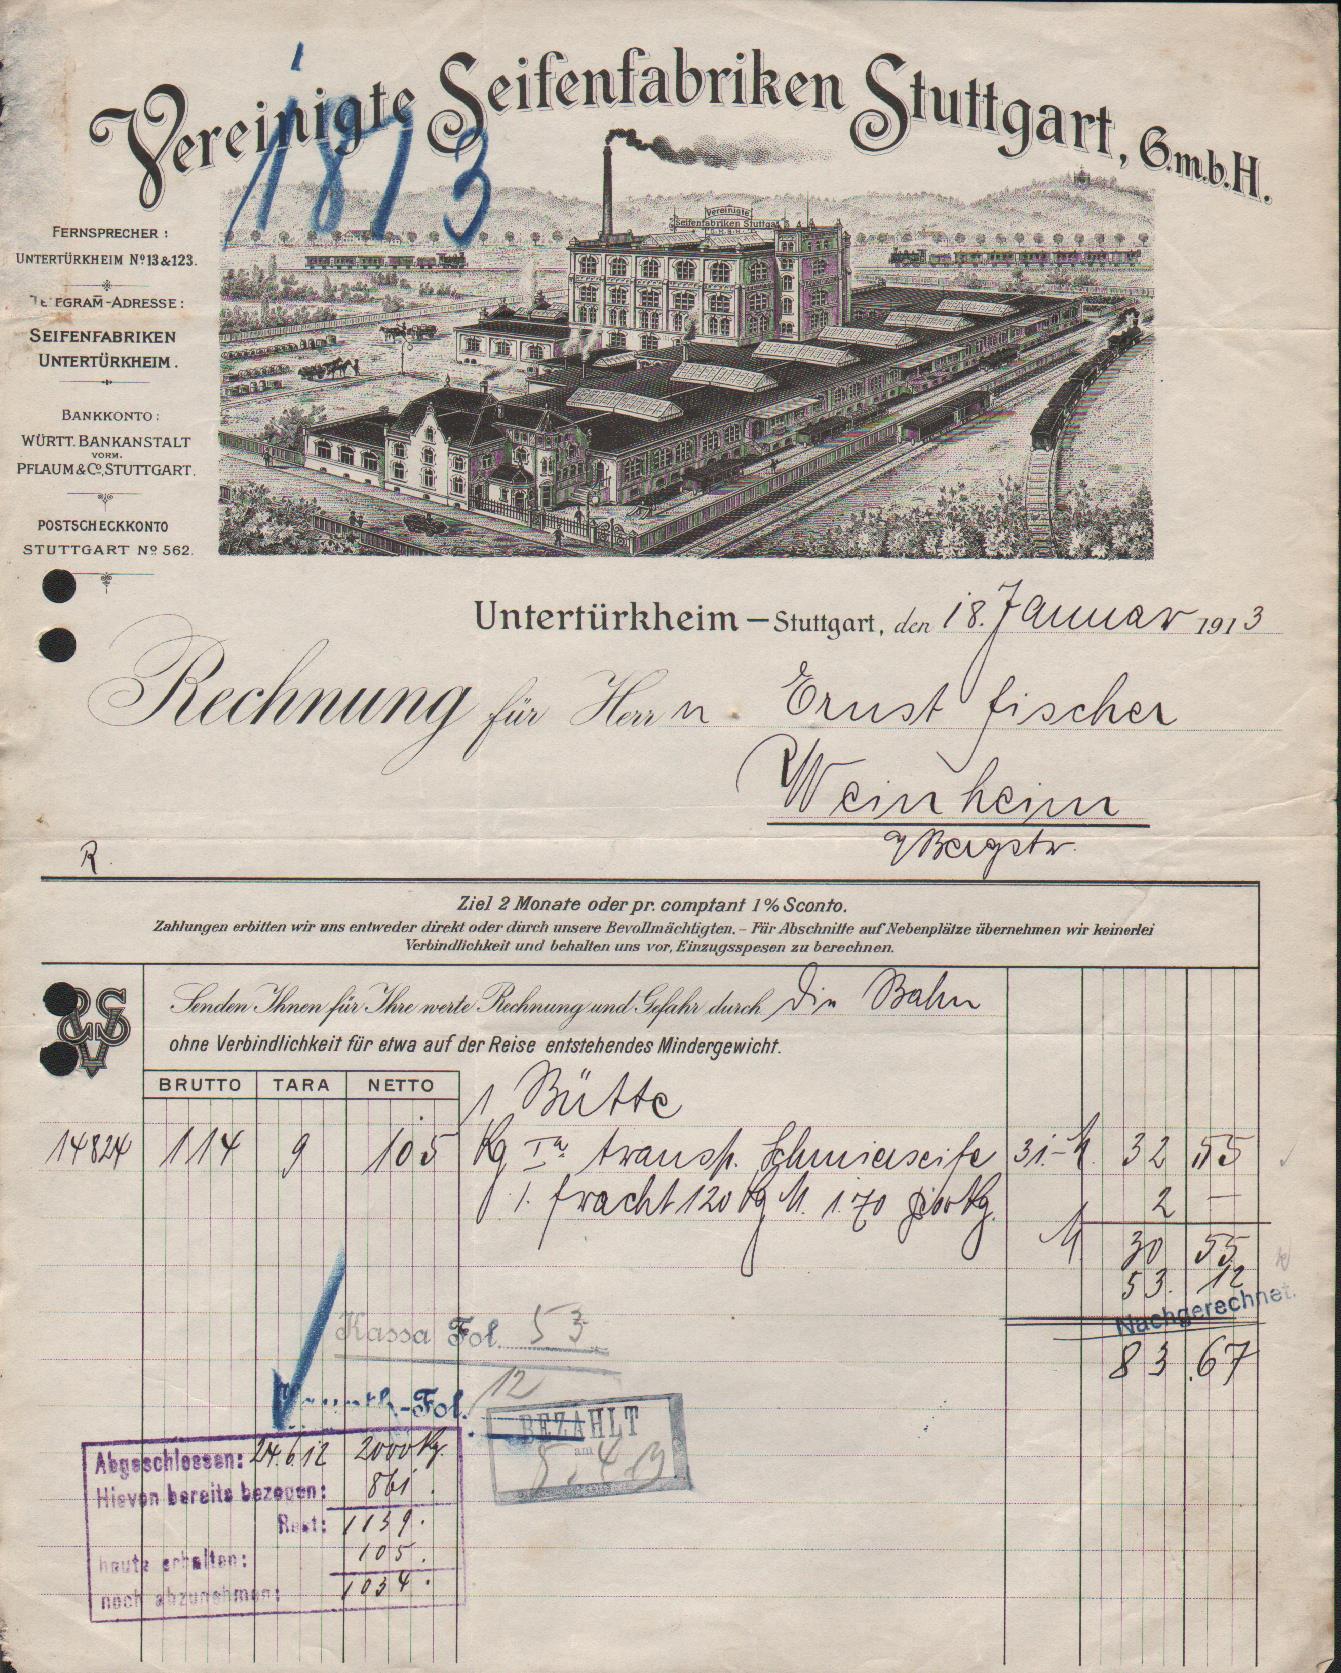 Vereinigte Seifenfabriken Stuttgart, G.m.b.H.
1873
Vereinigte
Seifenfabriken Stuttgart
FERNSPRECHER:
UNTERTÜRKHEIM Nº 13 & 123.
TELEGRAM-ADRESSE:
SEIFENFABRIKEN
UNTERTÜRKHEIM.
BANKKONTO:
WÜRTT. BANKANSTALT
VORM.
PFLAUM & Cº, STUTTGART.
POSTSCHECKKONTO
STUTTGART Nº 562.
Untertürkheim – Stuttgart, den 18. Januar 1913
Rechnung für Herrn Ernst Fischer
Weinheim
a/Bergstr.
R.
Ziel 2 Monate oder pr. comptant 1% Sconto.
Zahlungen erbitten wir uns entweder direkt oder durch unsere Bevollmächtigten. – Für Abschnitte auf Nebenplätze übernehmen wir keinerlei
Verbindlichkeit und behalten uns vor, Einzugsspesen zu berechnen.
VSS
Senden Ihnen für Ihre werte Rechnung und Gefahr durch die Bahn
ohne Verbindlichkeit für etwa auf der Reise entstehendes Mindergewicht.
BRUTTO TARA NETTO
1 Bütte
14824 114 9 105 Kg Ia transp. Schmierseife 31.– M. 32 55
./. Fracht 120 Kg M. 1.70 %Kg. 2 –
M 30 55
53. 12
Nachgerechnet.
83.67
Kassa Fol. 53
-Fol. 12
BEZAHLT
am
5. 4. 13
Abgeschlossen: 24.6.12 2000 Kg.
Hievon bereits bezogen: 861.
Rest: 1139.
heute erhalten: 105.
noch abzunehmen: 1034.